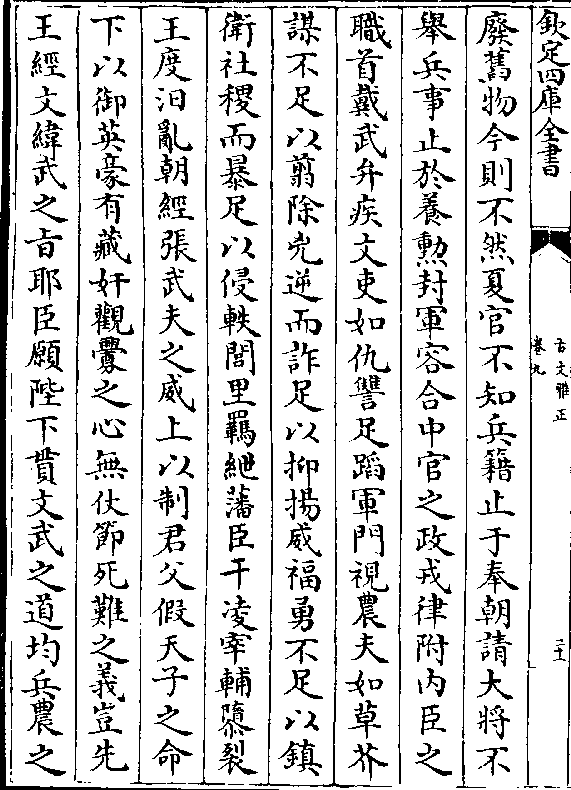 欽定四庫全書
古文雅正
卷九
二十
廢舊物今則不然夏官不知兵籍止于奉朝請大將不
舉兵事止於養勲封軍容合中官之政戎律附内臣之
職首戴武弁疾文吏如仇讐足蹈軍門視農夫如草芥
謀不足以翦除兇逆而詐足以抑揚威福勇不足以鎮
衛社稷而暴足以侵軼閭里羈紲藩臣干凌宰輔隳裂
王度汩亂朝經張武夫之威上以制君父假天子之命
下以御英豪有藏奸觀釁之心無仗節死難之義豈先
王經文緯武之㫖耶臣願陛下貫文武之道均兵農之